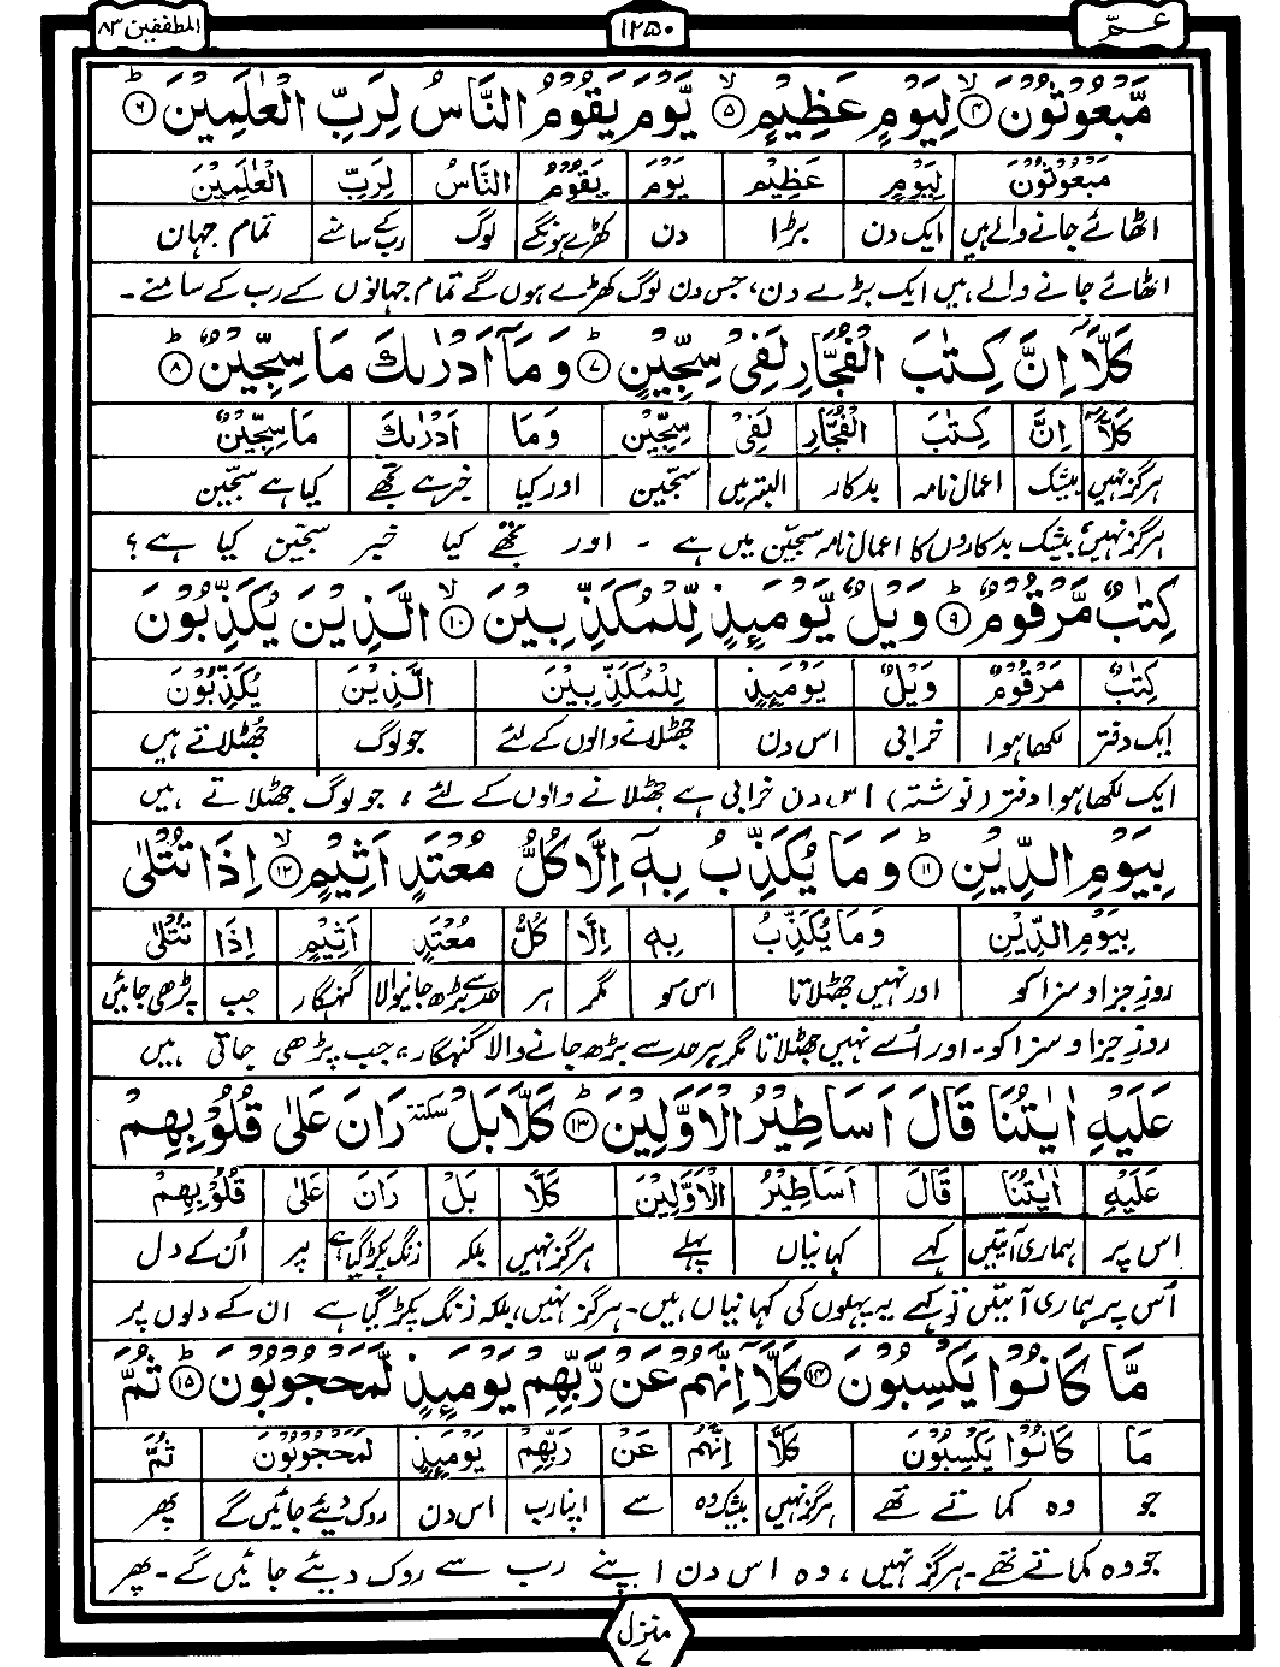 عمّ
۱۲۵۰
المطففین ۸۳
مَّبْعُوْثُوْنَ ۴ لِيَوْمٍ عَظِيْمٍ ۵ يَّوْمَ يَقُوْمُ النَّاسُ لِرَبِّ الْعٰلَمِيْنَ ۶
مَبْعُوْثُوْنَ لِيَوْمٍ عَظِيْمٍ يَوْمَ يَقُوْمُ النَّاسُ لِرَبِّ الْعٰلَمِيْنَ
اٹھائے جانے والے ہیں ایک دن بڑا دن کھڑے ہونگے لوگ رب کے سامنے تمام جہان
اٹھائے جانے والے ہیں ایک بڑے دن، جس دن لوگ کھڑے ہوں گے تمام جہانوں کے رب کے سامنے۔
كَلَّآ اِنَّ كِتٰبَ الْفُجَّارِ لَفِيْ سِجِّيْنٍ ۷ وَمَآ اَدْرٰىكَ مَا سِجِّيْنٌ ۸
كَلَّآ اِنَّ كِتٰبَ الْفُجَّارِ لَفِيْ سِجِّيْنٍ وَمَا اَدْرٰىكَ مَا سِجِّيْنٌ
ہرگز نہیں بیشک اعمال نامہ بدکار البتہ میں سجّین اور کیا خبر ہے تجھے کیا ہے سجّین
ہرگز نہیں، بیشک بدکاروں کا اعمال نامہ سجّین میں ہے ۔ اور تجھے کیا خبر سجّین کیا ہے؟
كِتٰبٌ مَّرْقُوْمٌ ۹ وَيْلٌ يَّوْمَئِذٍ لِّلْمُكَذِّبِيْنَ ۱۰ الَّذِيْنَ يُكَذِّبُوْنَ
كِتٰبٌ مَرْقُوْمٌ وَيْلٌ يَوْمَئِذٍ لِلْمُكَذِّبِيْنَ الَّذِيْنَ يُكَذِّبُوْنَ
ایک دفتر لکھا ہوا خرابی اس دن جھٹلانے والوں کے لئے جو لوگ جھٹلاتے ہیں
ایک لکھا ہوا دفتر (نوشتہ) اس دن خرابی ہے جھٹلانے والوں کے لئے، جو لوگ جھٹلاتے ہیں
بِيَوْمِ الدِّيْنِ ۱۱ وَمَا يُكَذِّبُ بِهٖٓ اِلَّا كُلُّ مُعْتَدٍ اَثِيْمٍ ۱۲ اِذَا تُتْلٰى
بِيَوْمِ الدِّيْنِ وَمَا يُكَذِّبُ بِهٖٓ اِلَّا كُلُّ مُعْتَدٍ اَثِيْمٍ اِذَا تُتْلٰى
روزِ جزا و سزا کو اور نہیں جھٹلاتا اس کو مگر ہر حد سے بڑھ جانیوالا گنہگار جب پڑھی جائیں
روزِ جزا و سزا کو۔ اور اُسے نہیں جھٹلاتا مگر ہر حد سے بڑھ جانے والا گنہگار، جب پڑھی جاتی ہیں
عَلَيْهِ اٰيٰتُنَا قَالَ اَسَاطِيْرُ الْاَوَّلِيْنَ ۱۳ كَلَّا بَلْ سکتہ رَانَ عَلٰى قُلُوْبِهِمْ
عَلَيْهِ اٰيٰتُنَا قَالَ اَسَاطِيْرُ الْاَوَّلِيْنَ كَلَّا بَلْ رَانَ عَلٰى قُلُوْبِهِمْ
اس پر ہماری آیتیں کہے کہانیاں پہلے ہرگز نہیں بلکہ زنگ پکڑ گیا ہے پر اُن کے دل
اُس پر ہماری آیتیں تو کہے یہ پہلوں کی کہانیاں ہیں۔ ہرگز نہیں، بلکہ زنگ پکڑ گیا ہے ان کے دلوں پر
مَّا كَانُوْا يَكْسِبُوْنَ ۱۴ كَلَّآ اِنَّهُمْ عَنْ رَّبِّهِمْ يَوْمَئِذٍ لَّمَحْجُوْبُوْنَ ۱۵ ثُمَّ
مَا كَانُوْا يَكْسِبُوْنَ كَلَّآ اِنَّهُمْ عَنْ رَبِّهِمْ يَوْمَئِذٍ لَمَحْجُوْبُوْنَ ثُمَّ
جو وہ کماتے تھے ہرگز نہیں بیشک وہ سے اپنا رب اس دن روک دیئے جائیں گے پھر
جو وہ کماتے تھے۔ ہرگز نہیں، وہ اس دن اپنے رب سے روک دیئے جائیں گے۔ پھر
منزل
۷